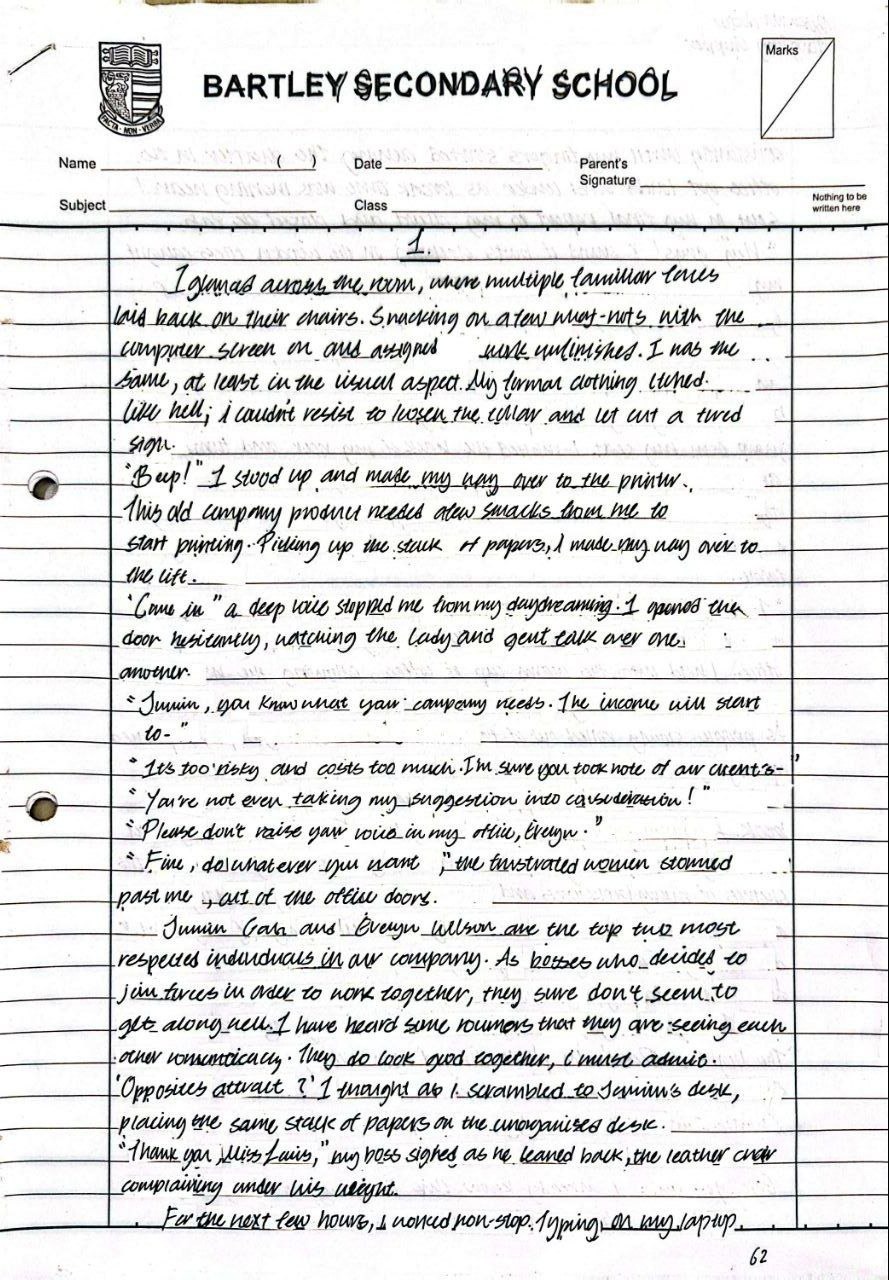 BARTLEY SECONDARY SCHOOL
FACTA · NON · VERBA
Marks
Name ( ) Date Parent's Signature
Subject Class
Nothing to be written here
1.
I glanced across the room, where multiple familiar faces
laid back on their chairs. Snacking on a few nuts with the
computer screen on and assigned work unfinished. I was the
same, at least in the visual aspect. My formal clothing itched
like hell, i couldn't resist to loosen the collar and let out a tired
sign.
"Beep!" I stood up and made my way over to the printer.
This old company product needed a few smacks from me to
start printing. Picking up the stack of papers, I made my way over to
the lift.
"Come in" a deep voice stopped me from my daydreaming. I opened the
door hesitantly, watching the lady and gent talk over one
another.
"Jumin, you know what your company needs. The income will start
to-"
"It's too risky and costs too much. I'm sure you took note of our client's-"
"You're not even taking my suggestion into consideration!"
"Please don't raise your voice in my office, Evelyn."
"Fine, do whatever you want," the frustrated women stormed
past me, out of the office doors.
Jumin and Evelyn Wilson are the top two most
respected individuals in our company. As bosses who decided to
join forces in order to work together, they sure don't seem to
get along well. I have heard some roumors that they are seeing each
other romanticacy. They do look good together, i must admit.
'Opposites attract?' I thought as i scrambled to Jumin's desk,
placing the same stack of papers on the unorganised desk.
"Thank you, Miss," my boss sighed as he leaned back, the leather chair
complaining under his weight.
For the next few hours, i worked non-stop. Typing on my laptop
62